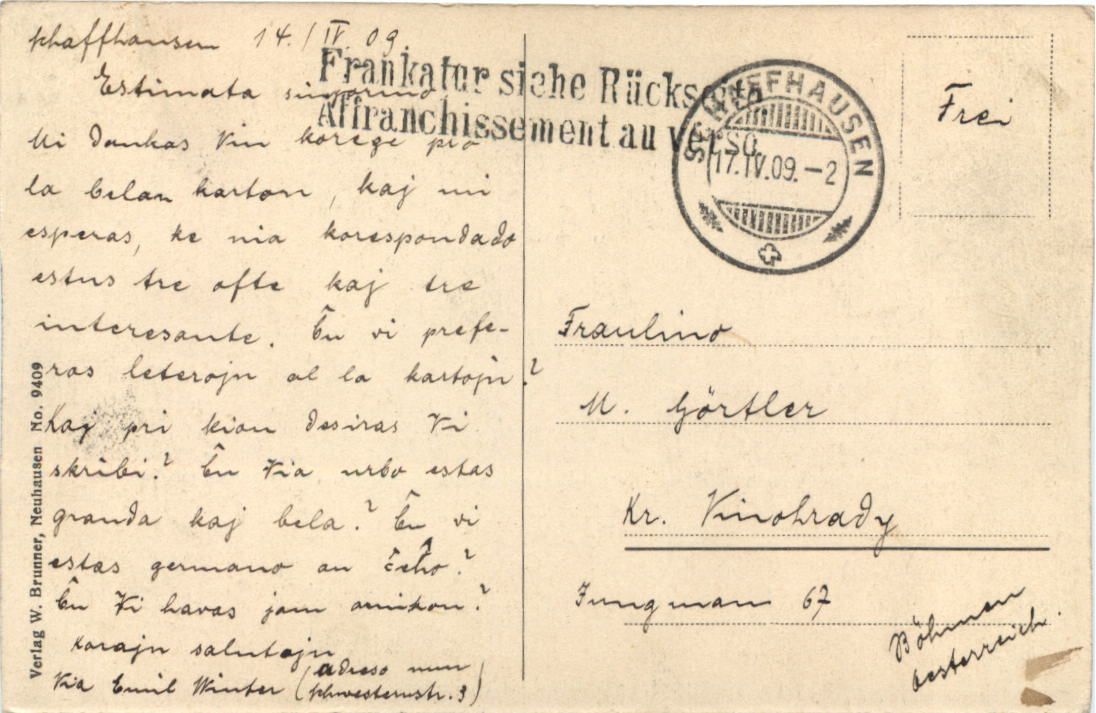 Schaffhausen 14./IV 09
Estimata
Mi dankas Vin korege pro
la belan karton, kaj mi
esperas, ke nia korespondado
estus tre ofte kaj tre
interesante. Ĉu vi prefe-
ras leterojn al la kartojn?
Kaj pri kion desiras Vi
skribi? Ĉu Via urbo estas
granda kaj bela? Ĉu vi
estas germano au ĉeĥo?
Ĉu Vi havas jam amikon?
Korajn salutojn
Via Emil Winter (adreso nun
schwesternstr. 3)
Verlag W. Brunner, Neuhausen No. 9409
Frankatur siehe Rückseite
Affranchissement au verso.
SCHAFFHAUSEN
17.IV.09.–2
Frei
Fraulino
M. Görtler
Kr. Vinohrady
Jungmann 67
Böhmen
Oesterreich.